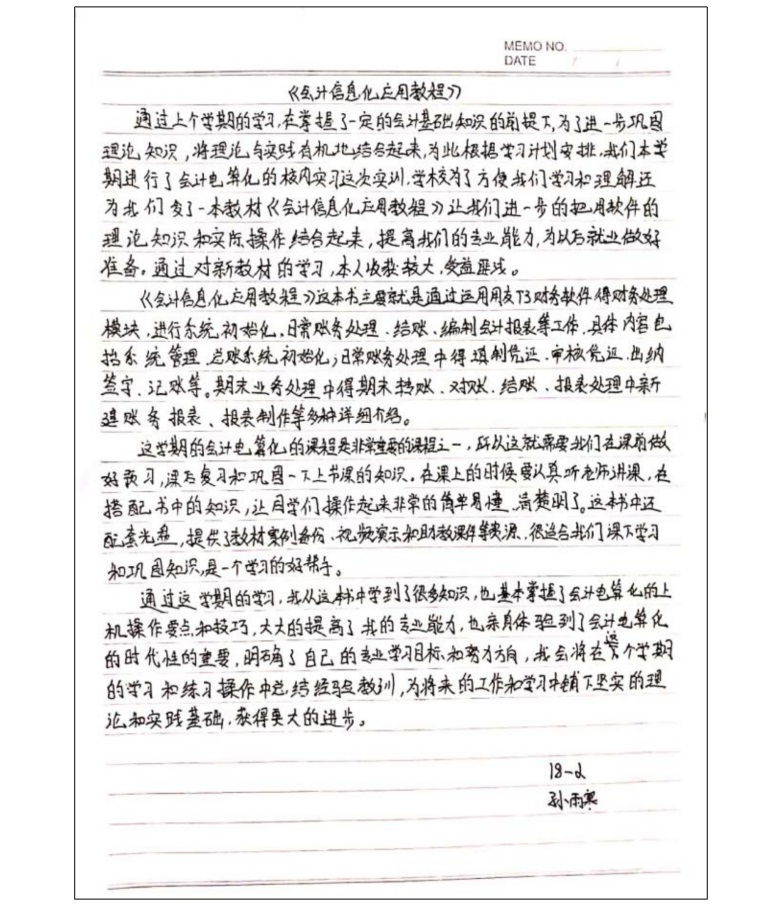 MEMO NO.
DATE / /
《会计信息化应用教程》
通过上个学期的学习,在掌握了一定的会计基础知识的前提下,为了进一步巩固
理论知识,将理论与实践有机地结合起来,为此根据学习计划安排,我们本学
期进行了会计电算化的校内实习这次实训,学校为了方便我们学习和理解还
为我们发了一本教材《会计信息化应用教程》让我们进一步的把用软件的
理论知识和实际操作结合起来,提高我们的专业能力,为以后就业做好
准备。通过对新教材的学习,本人收获较大,受益匪浅。
《会计信息化应用教程》这本书主要就是通过运用用友T3财务软件得财务处理
模块,进行系统初始化、日常账务处理、结账、编制会计报表等工作,具体内容包
括系统管理、总账系统初始化;日常账务处理中得填制凭证、审核凭证、出纳
签字、记账等。期末业务处理中得期末转账、对账、结账、报表处理中新
建账务报表、报表制作等多种详细介绍。
这学期的会计电算化的课程是非常重要的课程之一,所以这就需要我们在课前做
好预习,课后复习和巩固一下上节课的知识。在课上的时候要认真听老师讲课,在
搭配书中的知识,让同学们操作起来非常的简单易懂、清楚明了。这本书中还
配套光盘,提供了教材案例备份、视频演示和助教课件等资源,很适合我们课下学习
和巩固知识,是一个学习的好帮手。
通过这学期的学习,我从这本书中学到了很多知识,也基本掌握了会计电算化的上
机操作要点和技巧,大大的提高了我的专业能力,也亲身体验到了会计电算化
的时代性的重要,明确了自己的专业学习目标和努力方向,我会将在这个学期
的学习和练习操作中总结经验教训,为将来的工作和学习中铺下坚实的理
论和实践基础,获得更大的进步。
18-2
孙雨寒